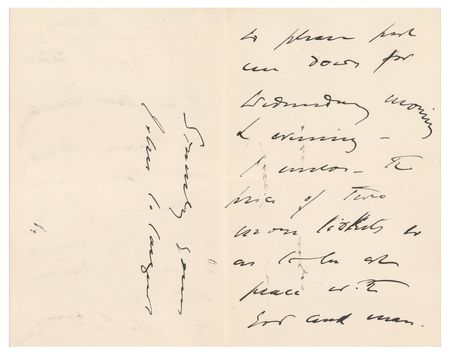 to please put
me down for
Wednesday morning
& evening –
I enclose – the
price of two
more tickets so
as to be at
peace with
God and man.
Sincerely yours
John S. Sargent